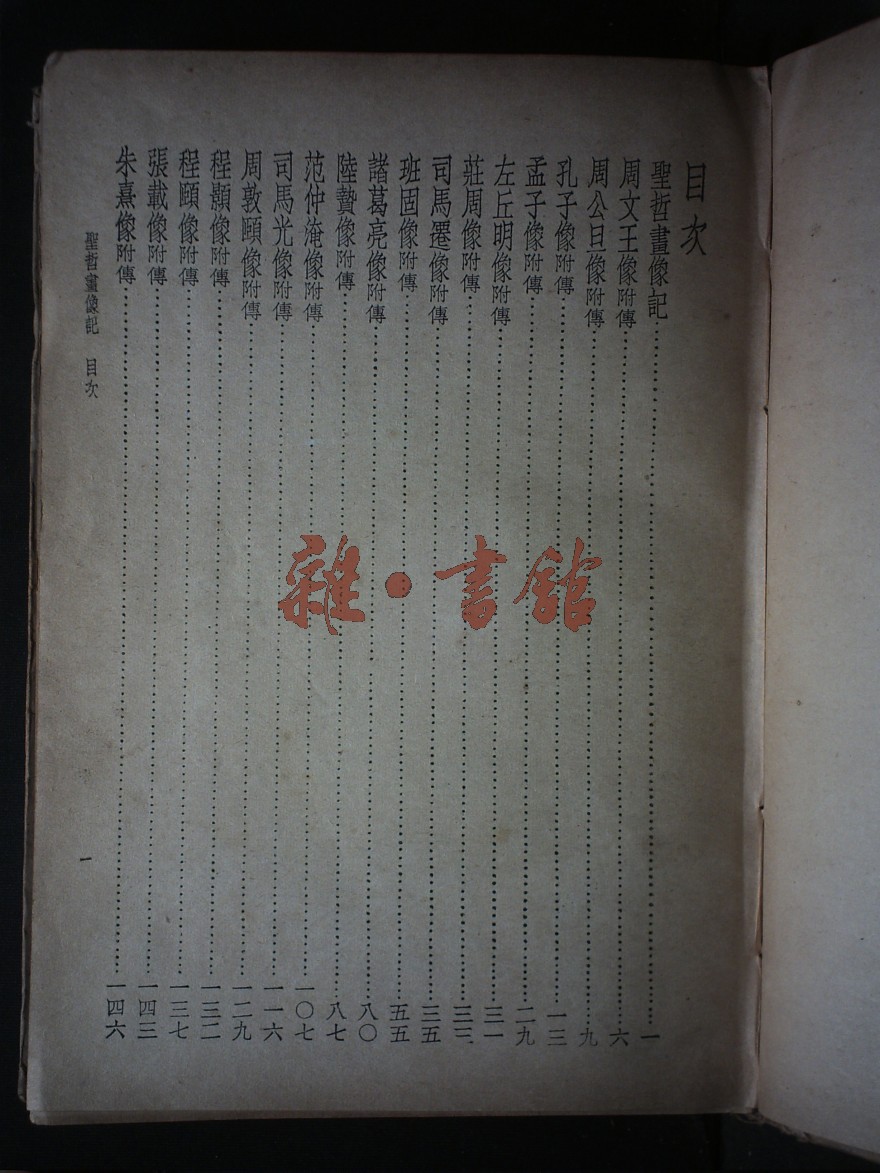 目次
聖哲畫像記…一
周文王像附傳…六
周公旦像附傳…九
孔子像附傳…一三
孟子像附傳…二九
左丘明像附傳…三一
莊周像附傳…三三
司馬遷像附傳…三五
班固像附傳…五五
諸葛亮像附傳…八〇
陸贄像附傳…八七
范仲淹像附傳…一〇七
司馬光像附傳…一一六
周敦頤像附傳…一二九
程顥像附傳…一三二
程頤像附傳…一三七
張載像附傳…一四三
朱熹像附傳…一四六
聖哲畫像記 目次
一
雜·書館